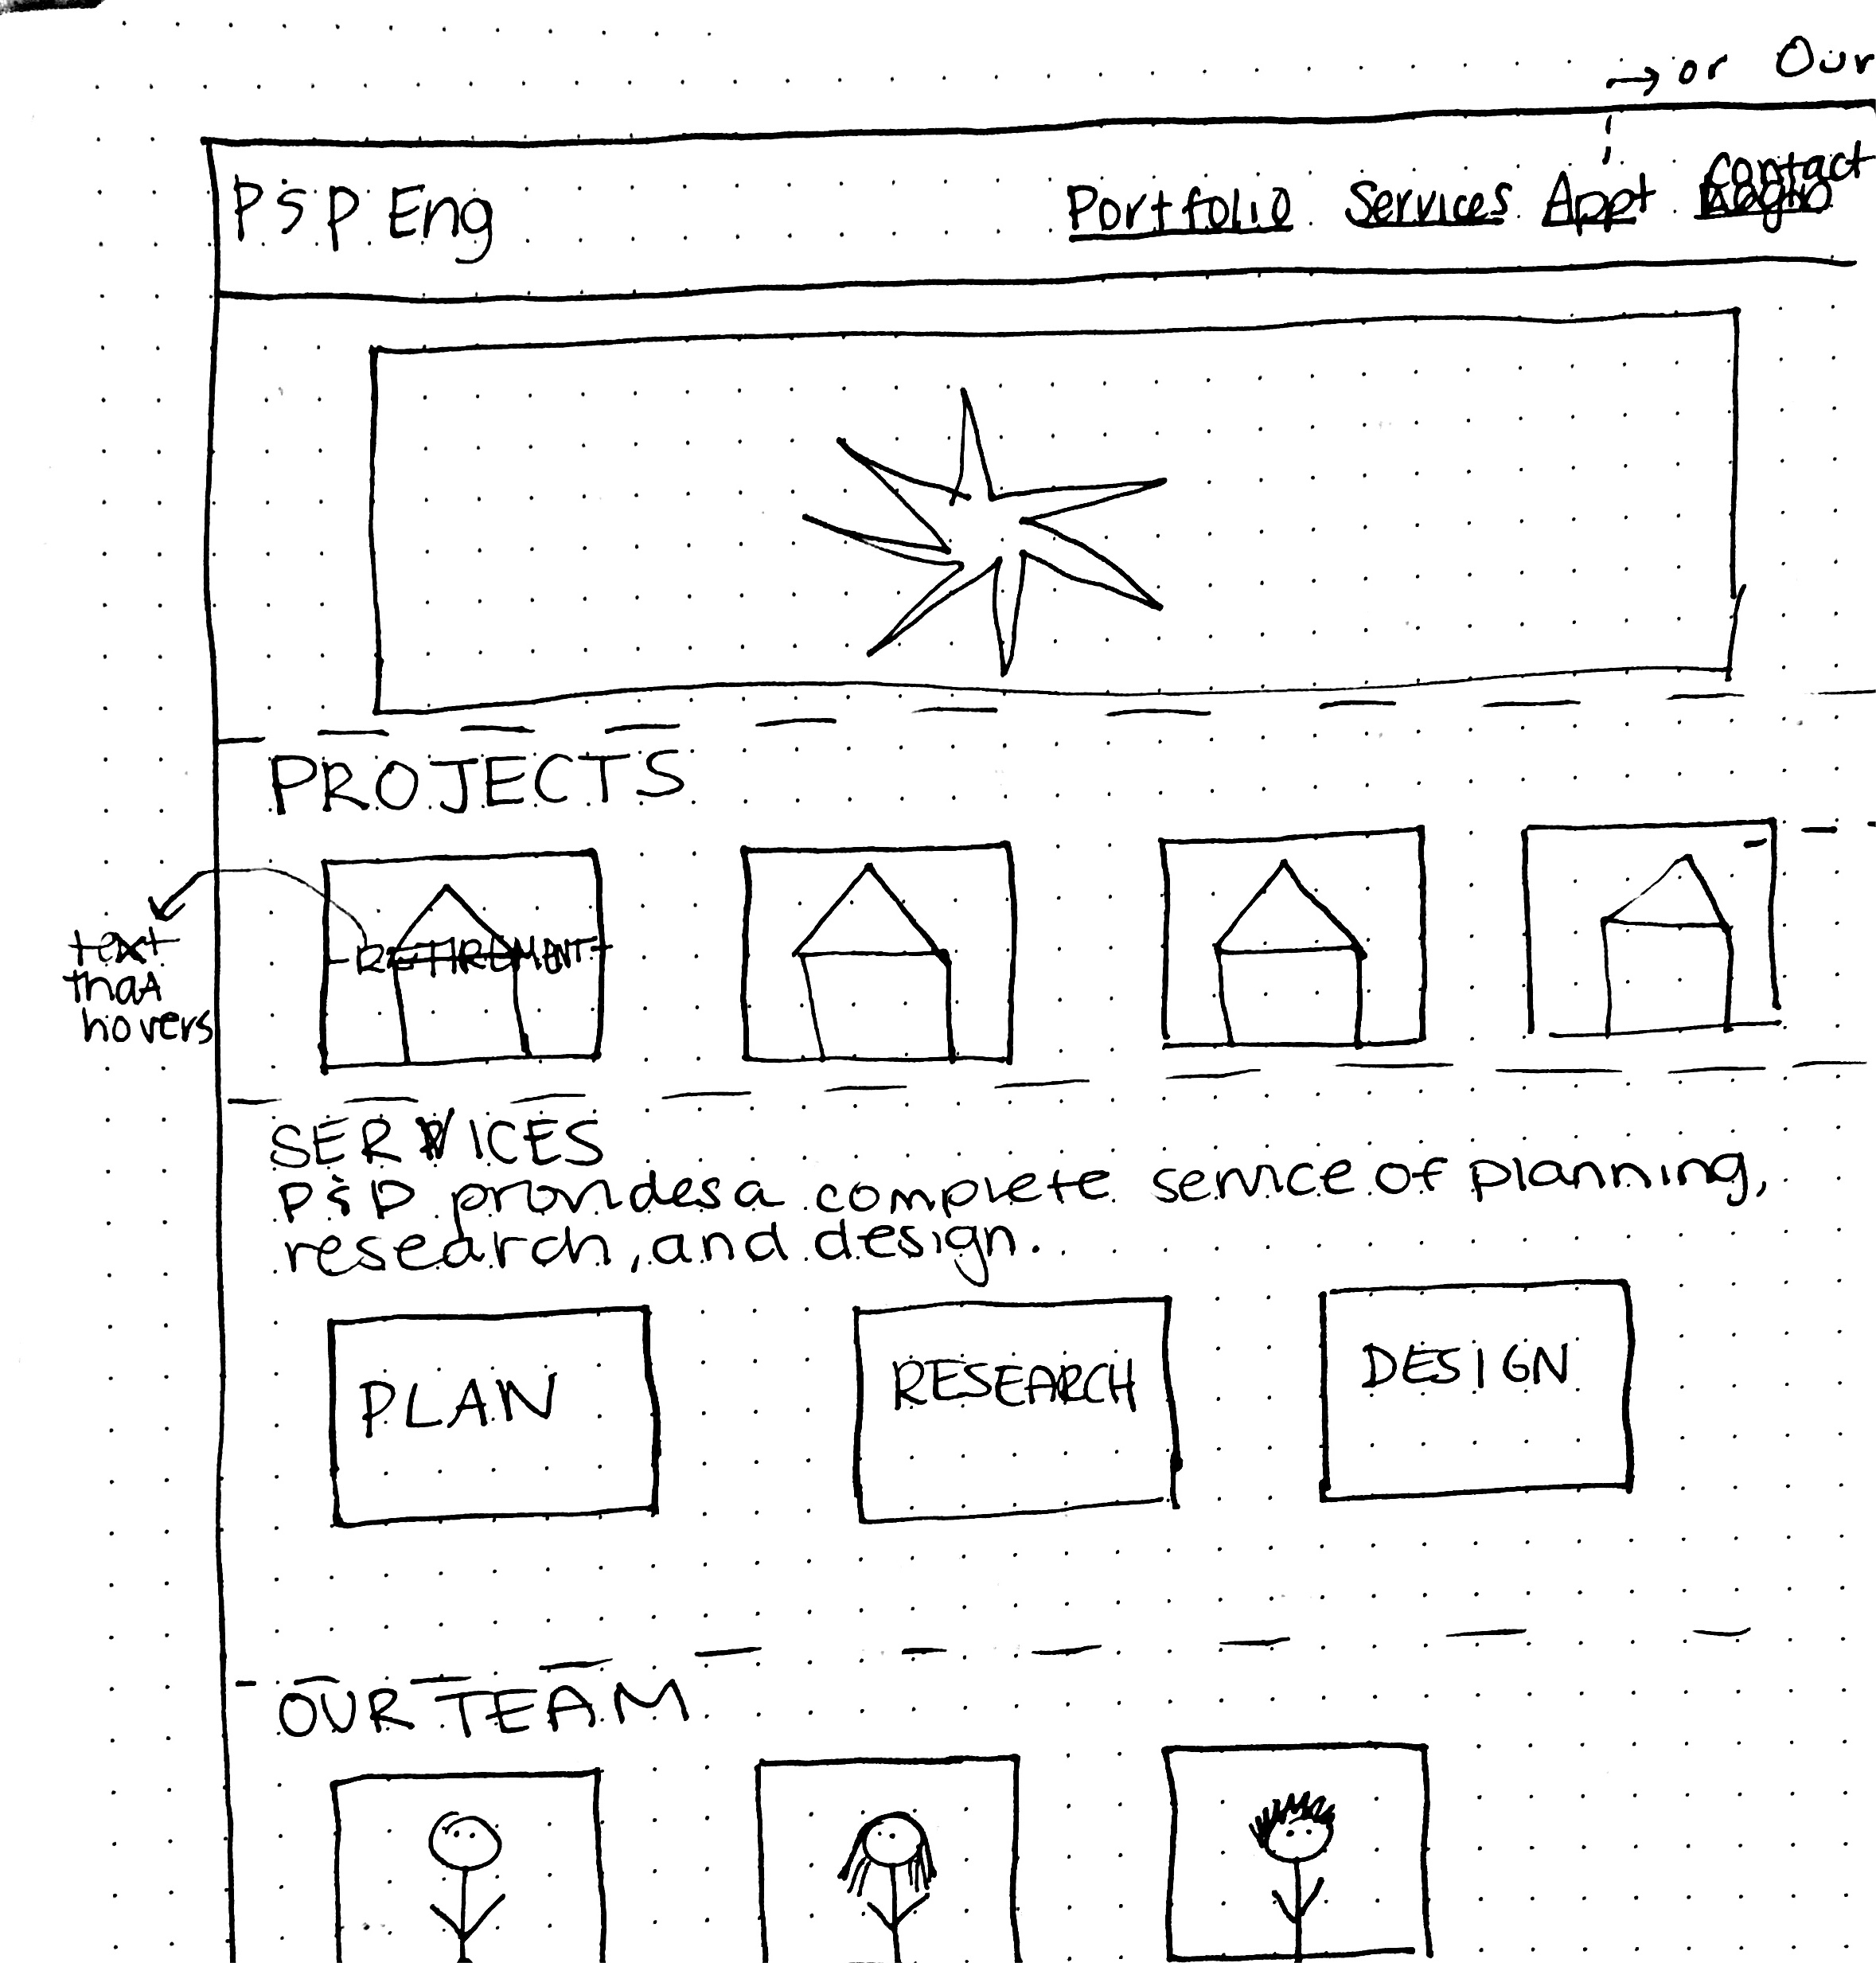 or Our
PSP Eng Portfolio Services Appt Contact
PROJECTS
RETIREMENT
text
that
hovers
SERVICES
PSP provides a complete service of planning,
research, and design.
PLAN RESEARCH DESIGN
OUR TEAM